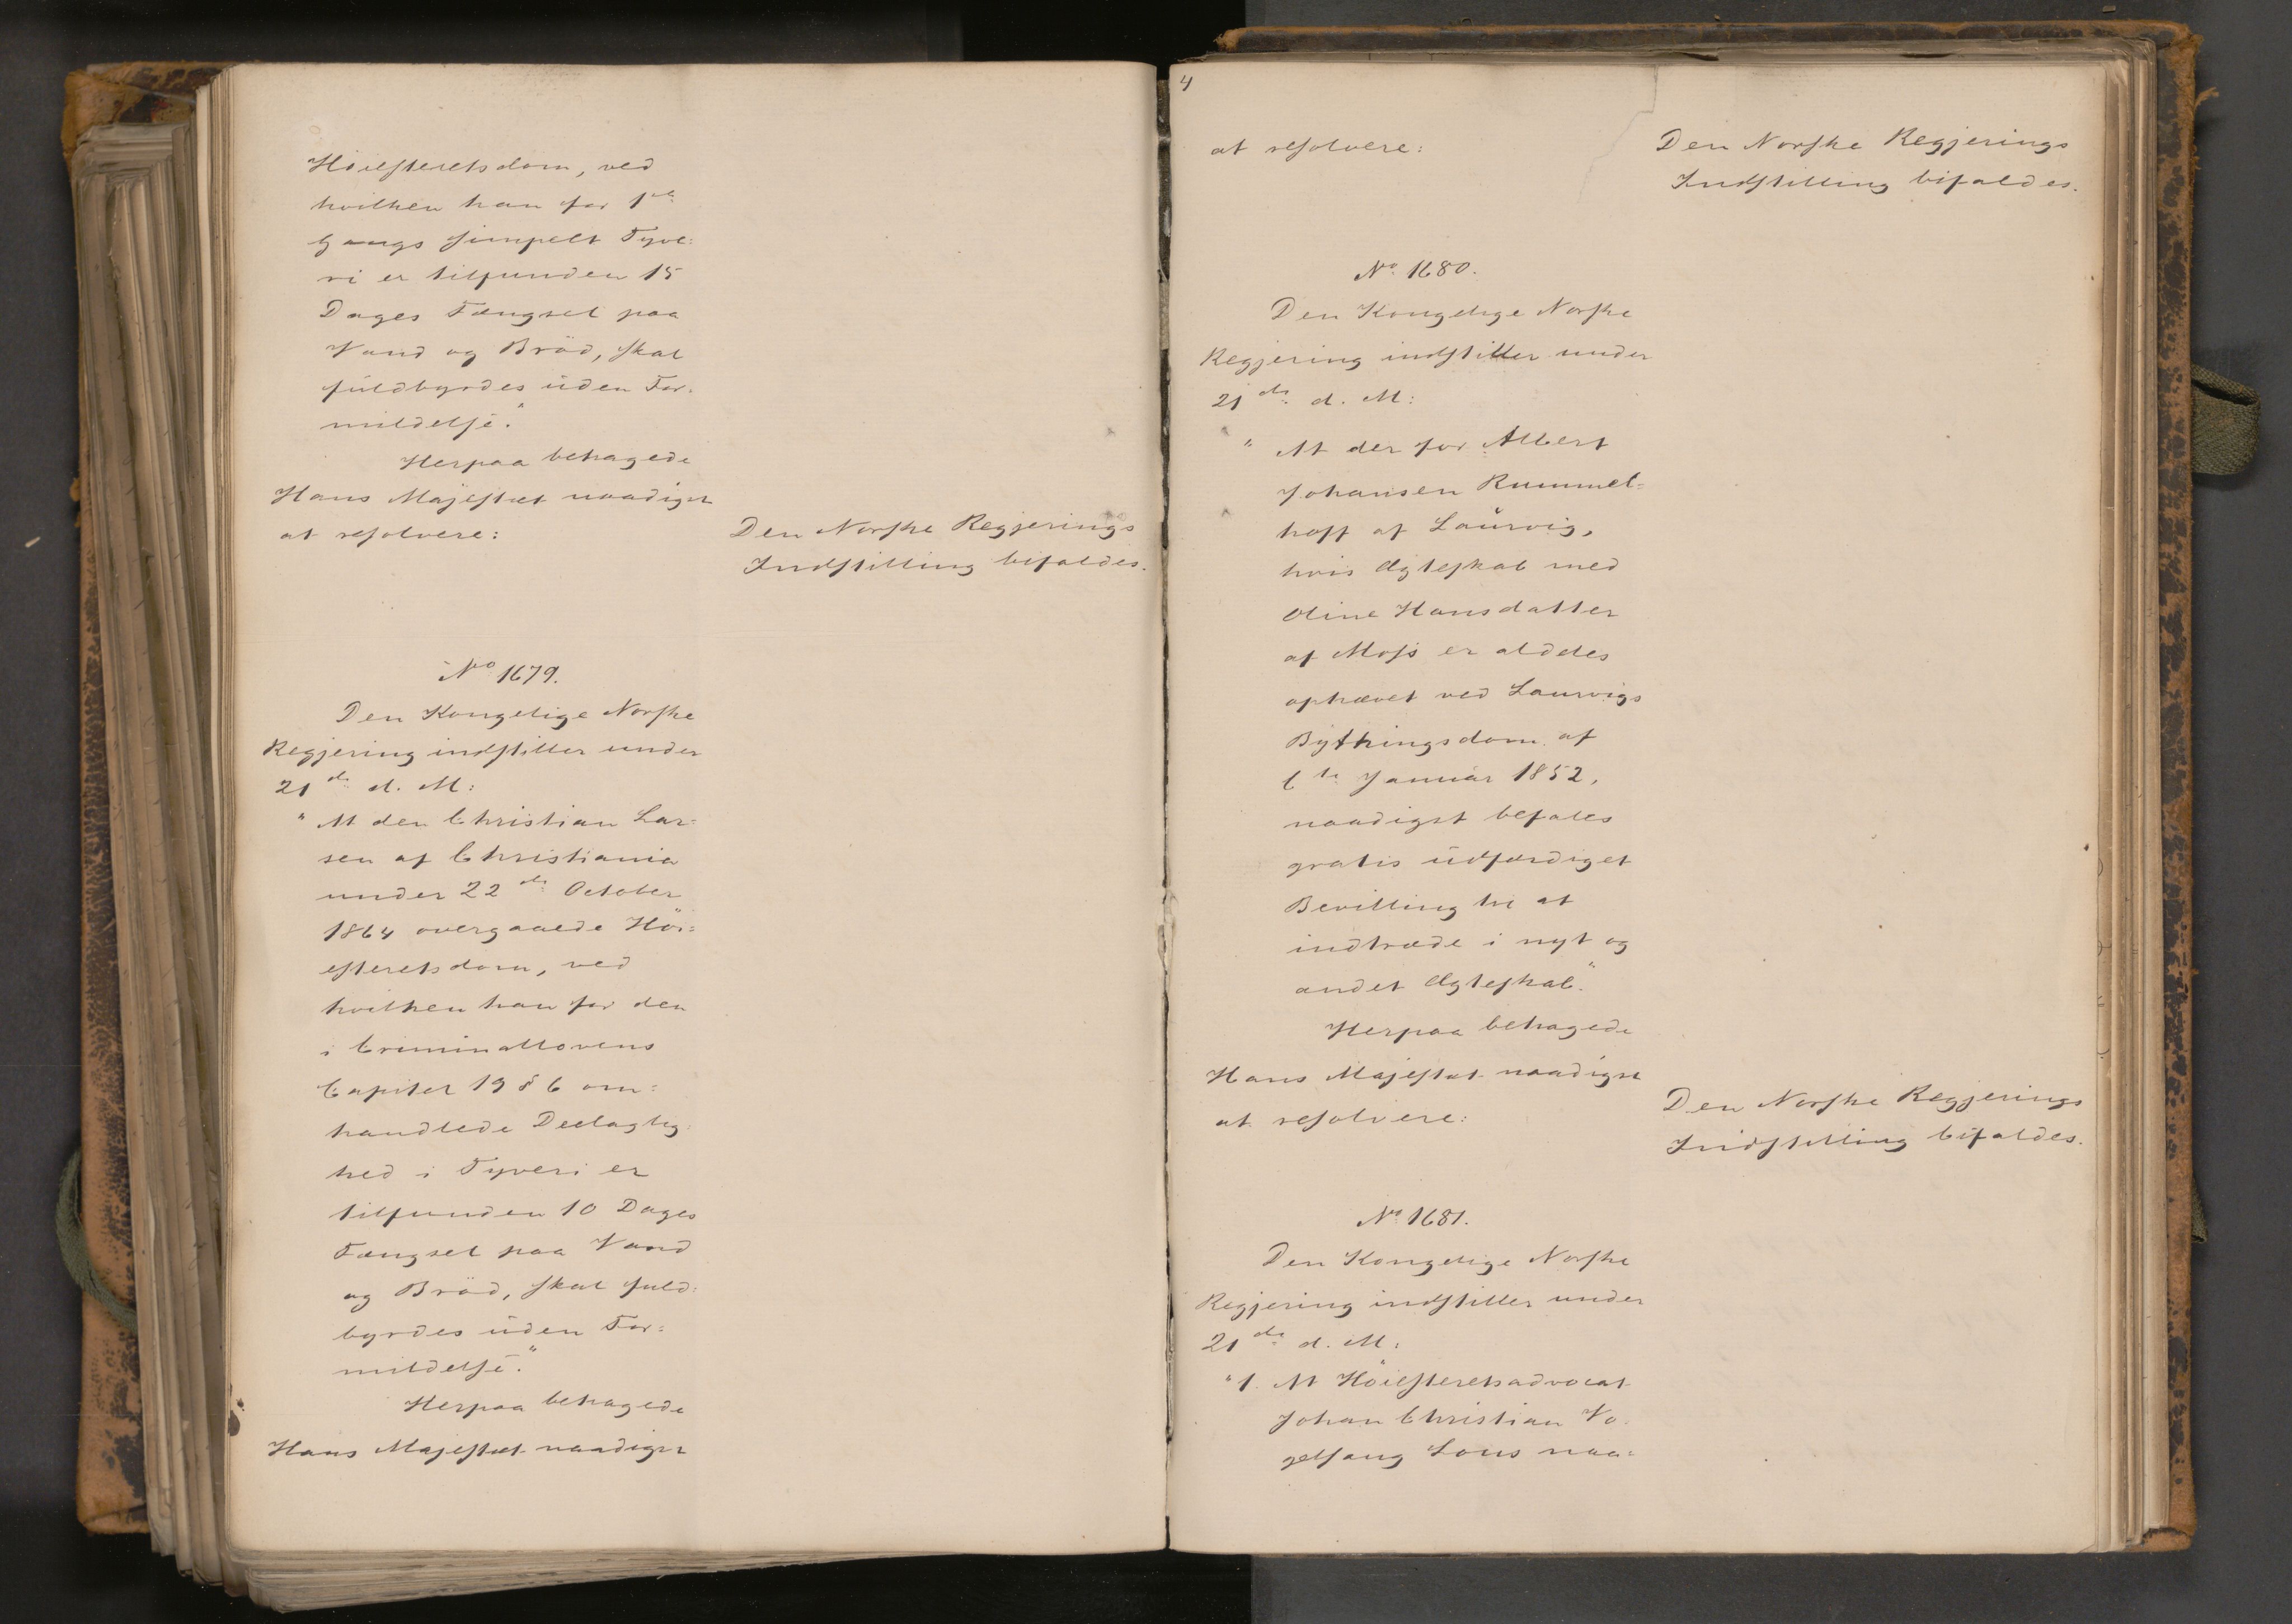 Høiesteretsdom, ved
hvilken han for 1ste
Gangs simpelt Tyve=
ri er tilfunden 15
Dages Fængsel paa
Vand og Brød, skal
fuldbyrdes uden For=
mildelse."
Herpaa behagede
Hans Majestæt naadigst
at resolvere:
Den Norske Regjerings
Indstilling bifaldes.
No 1679.
Den Kongelige Norske
Regjering indstiller under
21de d. M:
"At den Christian Lar=
sen af Christiania
under 22de October
1864 overgaaede Høi=
esteretsdom, ved
hvilken han for den
i Criminallovens
Capitel 19 § 6 om=
handlede Deelagtig=
hed i Tyveri er
tilfunden 10 Dages
Fængsel paa Vand
og Brød, skal fuld=
byrdes uden For=
mildelse."
Herpaa behagede
Hans Majestæt naadigst
4
at resolvere:
Den Norske Regjerings
Indstilling bifaldes.
No 1680.
Den Kongelige Norske
Regjering indstiller under
21de d. M:
"At der for Albert
Johansen Rummel=
hoff af Laurvig,
hvis Ægteskab med
Oline Hansdatter
af Moss er aldeles
ophævet ved Laurvigs
Bythingsdom af
6te Januar 1852,
naadigst befales
gratis udfærdiget
Bevilling til at
indtræde i nyt og
andet Ægteskab."
Herpaa behagede
Hans Majestæt naadigst
at resolvere:
Den Norske Regjerings
Indstilling bifaldes.
No 1681.
Den Kongelige Norske
Regjering indstiller under
21de d. M:
"1. At Høiesteretsadvocat
Johan Christian Vo=
gelsang Lous naa=